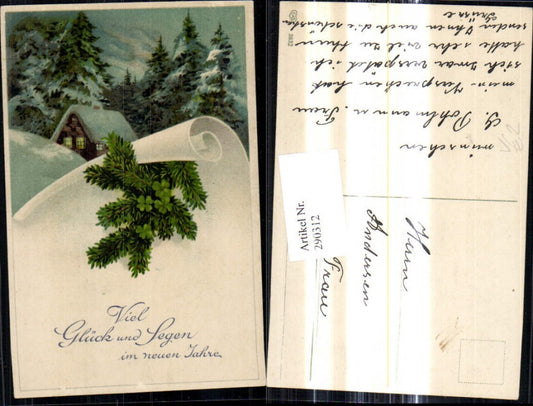 Viel
Glück und Segen
im neuen Jahre.
3832
wünschen
G. Pohlmann u. Frau
mein Versprechen hat
sich zwar verspätet ich
hatte sehr viel zu thun
senden Ihnen auch die schönsten
Grüsse
Artikel Nr.
290312
Herrn
Andersen
Frau